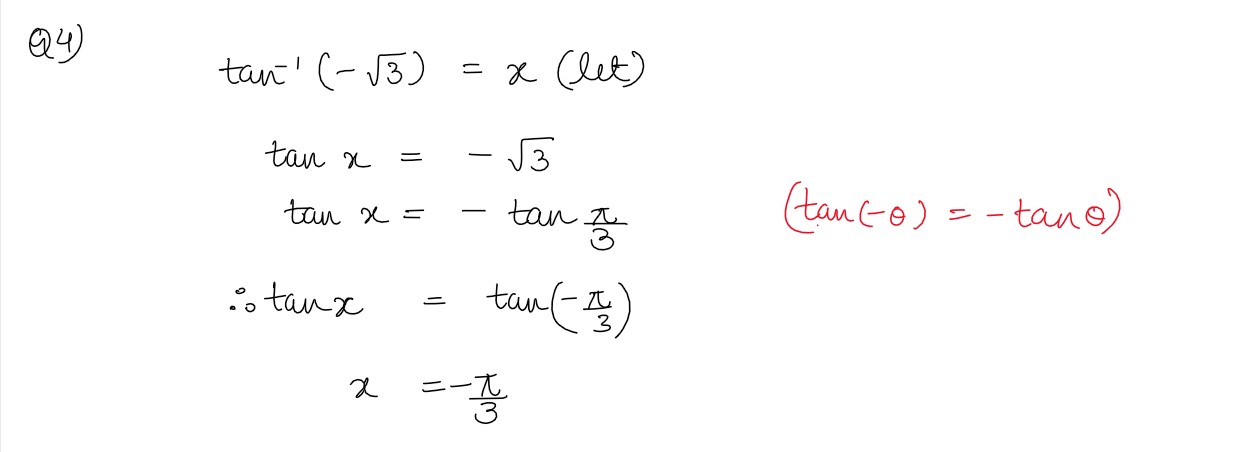 Q4)
tan⁻¹ (-√3) = x (let)
tan x = - √3
tan x = - tan π/3
(tan(-θ) = - tanθ)
∴ tanx = tan(-π/3)
x = -π/3